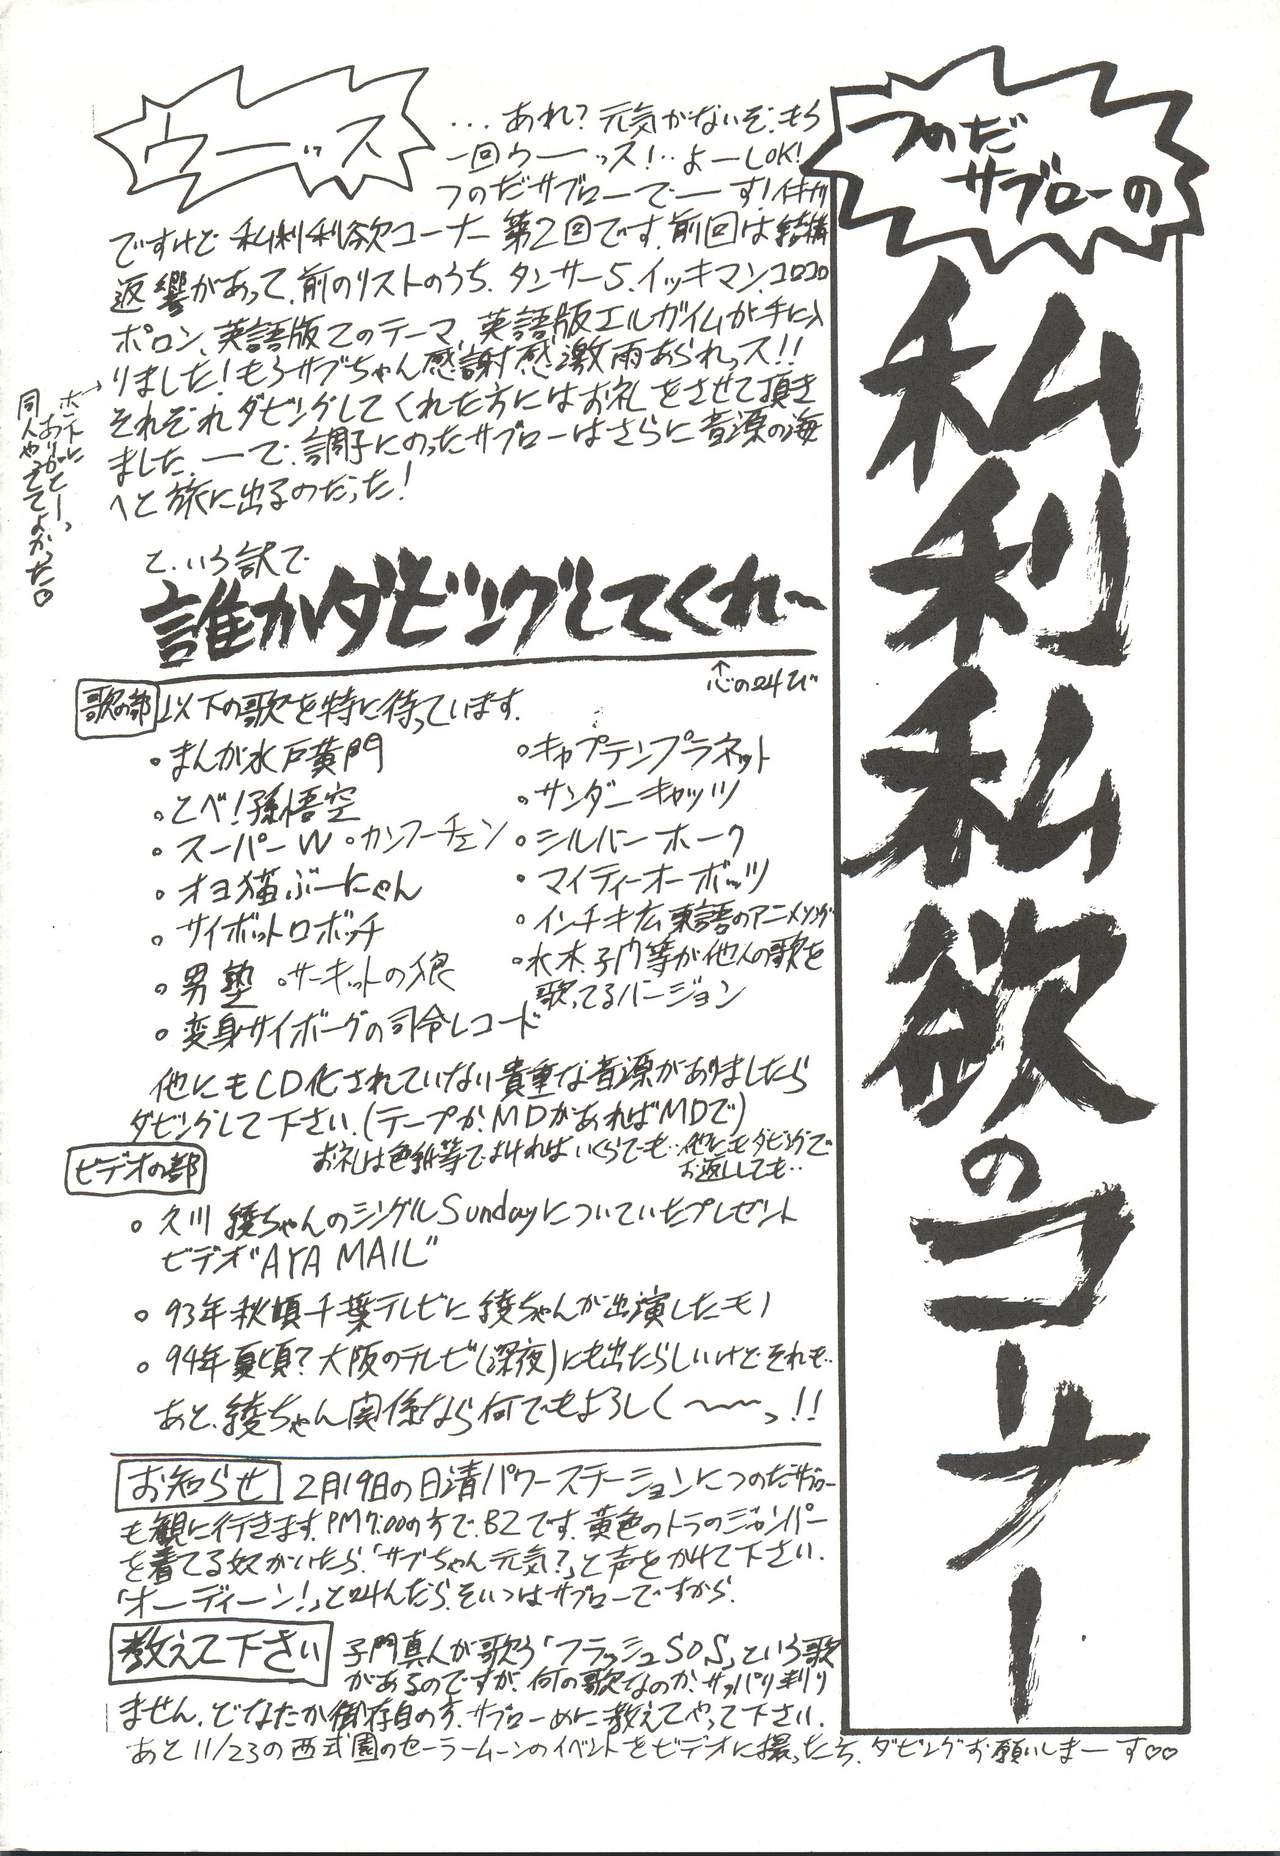 つのだ
サブローの
私利私欲のコーナー
ウーッス
...あれ?元気がないぞ.もう
一回ウーッス!..よーしOK!
つのだサブローでーす!イキナリ
ですけど私利私欲コーナー第2回です.前回は結構
返響があって、前のリストのうち、タンサー5、イッキマン、コロコロ
ポロン、英語版てのテーマ、英語版エルガイムが手に入
りました!もうサブちゃん感謝感激雨あられっス!!
それぞれダビングしてくれた方にはお礼をさせて頂き
ました.ーで、調子にのったサブローはさらに音源の海
へと旅に出るのだった!
ホント
おりがとーっ
同人やっててよかった♡
と、いう訳で
誰かダビングしてくれ〜
↑心の叫び
歌の部 以下の歌を特に待っています.
・まんが水戸黄門
・とべ!孫悟空
・スーパーW ・カンフーチェン
・オヨ猫ぶーにゃん
・サイボットロボッチ
・男塾 ・サーキットの狼
・変身サイボーグの司令レコード
・キャプテンプラネット
・サンダーキャッツ
・シルバーホーク
・マイティーオーボッツ
・インチキ広東語のアニメソング
・水木、子門等が他人の歌を
歌ってるバージョン
他にもCD化されていない貴重な音源がありましたら
ダビングして下さい.(テープか、MDがあればMDで)
お礼は色紙等でよければいくらでも…他にもダビングで
お返ししても..
ビデオの部
・久川綾ちゃんのシングルSundayについていたプレゼント
ビデオ"AYA MAIL"
・93年秋頃千葉テレビに綾ちゃんが出演したモノ
・94年夏頃?大阪のテレビ(深夜)にも出たらしいけどそれも..
あと、綾ちゃん関係なら何でもよろしく〜〜っ!!
お知らせ 2月19日の日清パワーステーションにつのだサブロー
も観に行きます.PM7:00の方でB2です.黄色のトラのジャンパー
を着てる奴がいたら「サブちゃん元気?」と声をかけて下さい.
「オーディーン!」と叫んだら、そいつはサブローですから.
教えて下さい 子門真人が歌う「フラッシュSOS」という歌
があるのですが、何の歌なのか、サッパリ判り
ません.どなたか御存自の方、サブローめに教えてやって下さい.
あと11/23の西武園のセーラームーンのイベントをビデオに撮った方、ダビングお願いしまーす♡♡